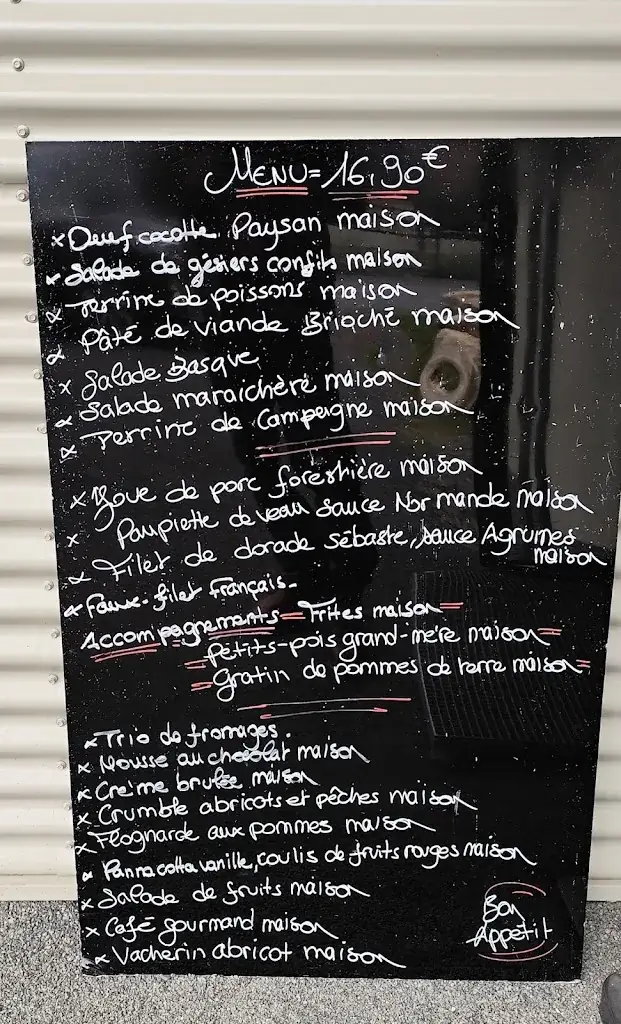 MENU=16,90€
x Oeuf cocotte Paysan maison
x Salade de gésiers confits maison
x Terrine de poissons maison
x Pâté de viande Brioché maison
x Salade Basque
x Salade maraichère maison
x Terrine de Campagne maison
x Joue de porc forestière maison
x Paupiette de veau sauce Normande maison
x Filet de dorade sébaste, sauce Agrumes
maison
x Faux-filet Français-
Accompagnements = Frites maison =
= Petits-pois grand-mère maison =
= Gratin de pommes de terre maison =
x Trio de fromages.
x Mousse au chocolat maison
x Crème brulée maison
x Crumble abricots et pêches maison
x Flognarde aux pommes maison
x Panna cotta vanille, coulis de fruits rouges maison
x Salade de fruits maison
x Café gourmand maison
x Vacherin abricot maison
Bon
Appétit